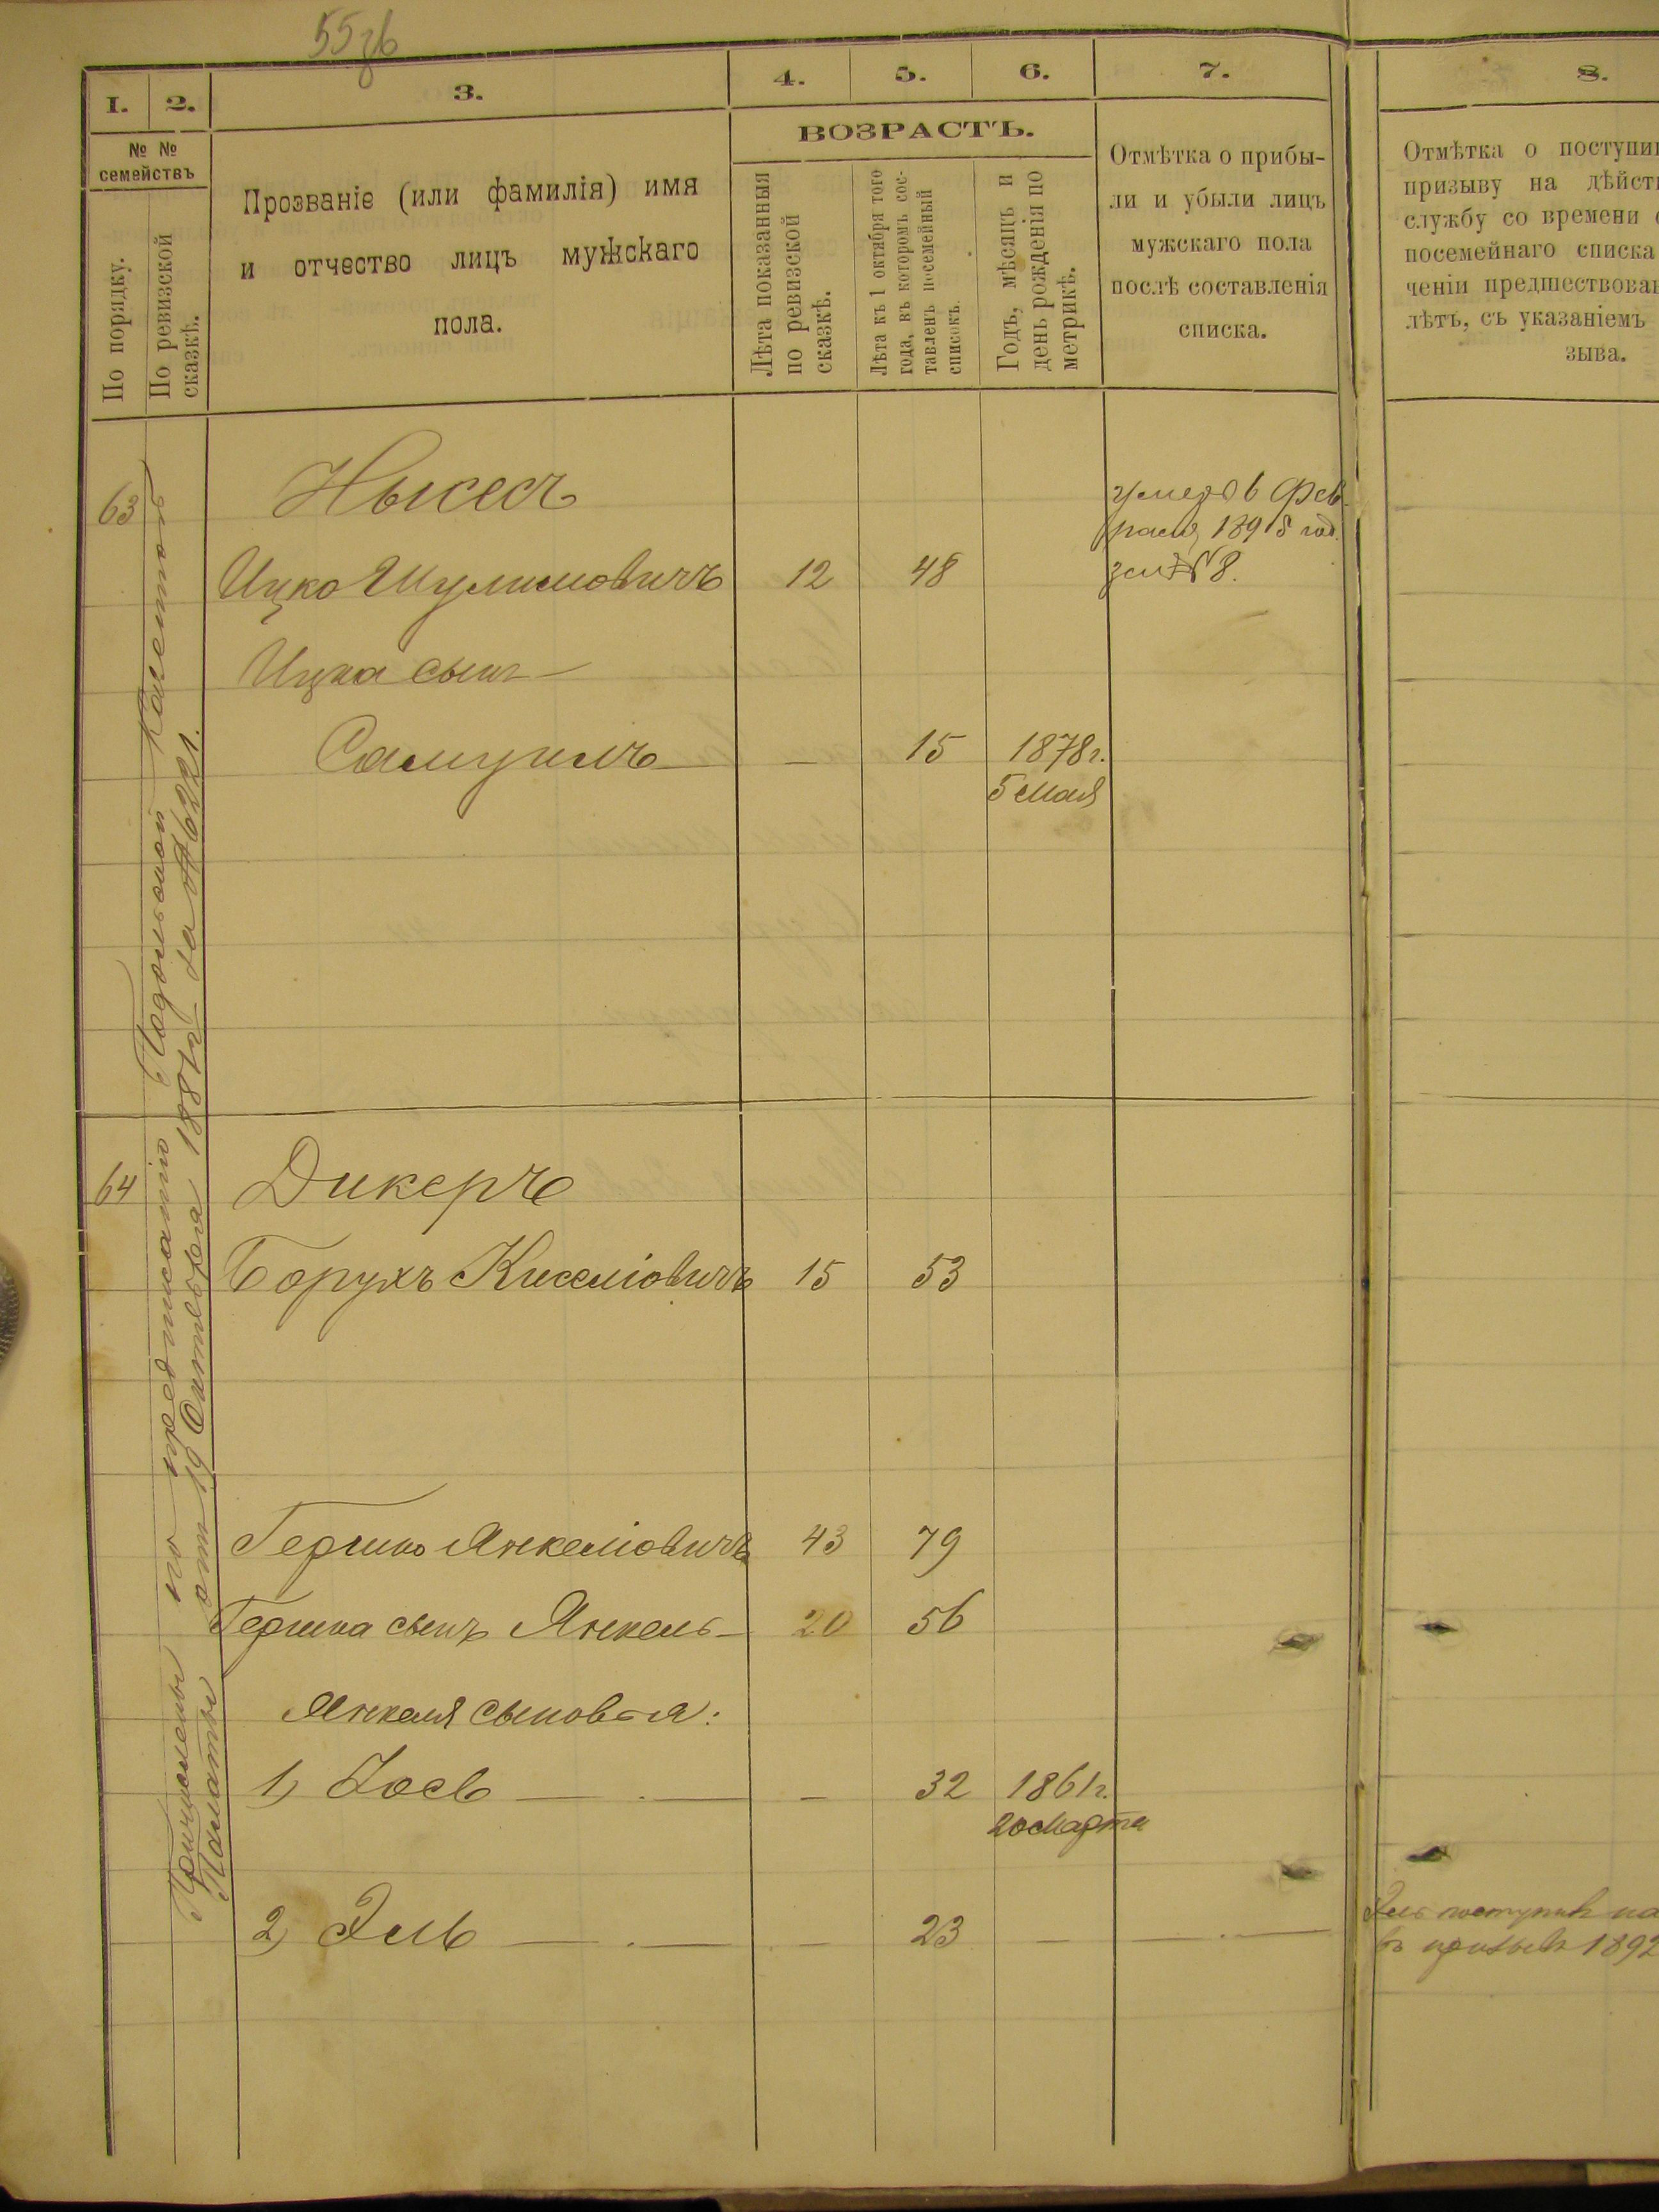 55 зв
1. 2. 3. 4. 5. 6. 7. 8.
№ №
семействъ
По порядку.
По ревизской
сказкѣ.
Прозваніе (или фамилія) имя
и отчество лицъ мужскаго
пола.
ВОЗРАСТЪ.
Лѣта показанныя
по ревизской
сказкѣ.
Лѣта къ 1 октября того
года, въ которомъ сос-
тавленъ посемейный
списокъ.
Годъ, мѣсяцъ и
день рожденія по
метрикѣ.
Отмѣтка о прибы-
ли и убыли лицъ
мужскаго пола
послѣ составленія
списка.
Отмѣтка о поступи
призыву на дѣйст
службу со времени
посемейнаго списка
ченіи предшествова
лѣтъ, съ указаніемъ
зыва.
Причислены по предписанію Подольской Казенной
Палаты отъ 19 Октября 1887 г. за № 6221.
63 Нысесъ
умеръ 6 Фев
раля 1898 год.
Ицко Шулимовичъ 12 48
№ 8.
Ицка сынъ
Самуилъ — 15 1878 г.
5 Мая
64 Дикеръ
Борухъ Киселіовичъ 15 53
Гершко Янкеліовичъ 43 79
Гершка сынъ Янкель 20 56
Янкеля сыновья:
1) Іось — 32 1861 г.
20 Марта
2) Эль — 23 — —
Эль поступилъ на
въ призывъ 1892